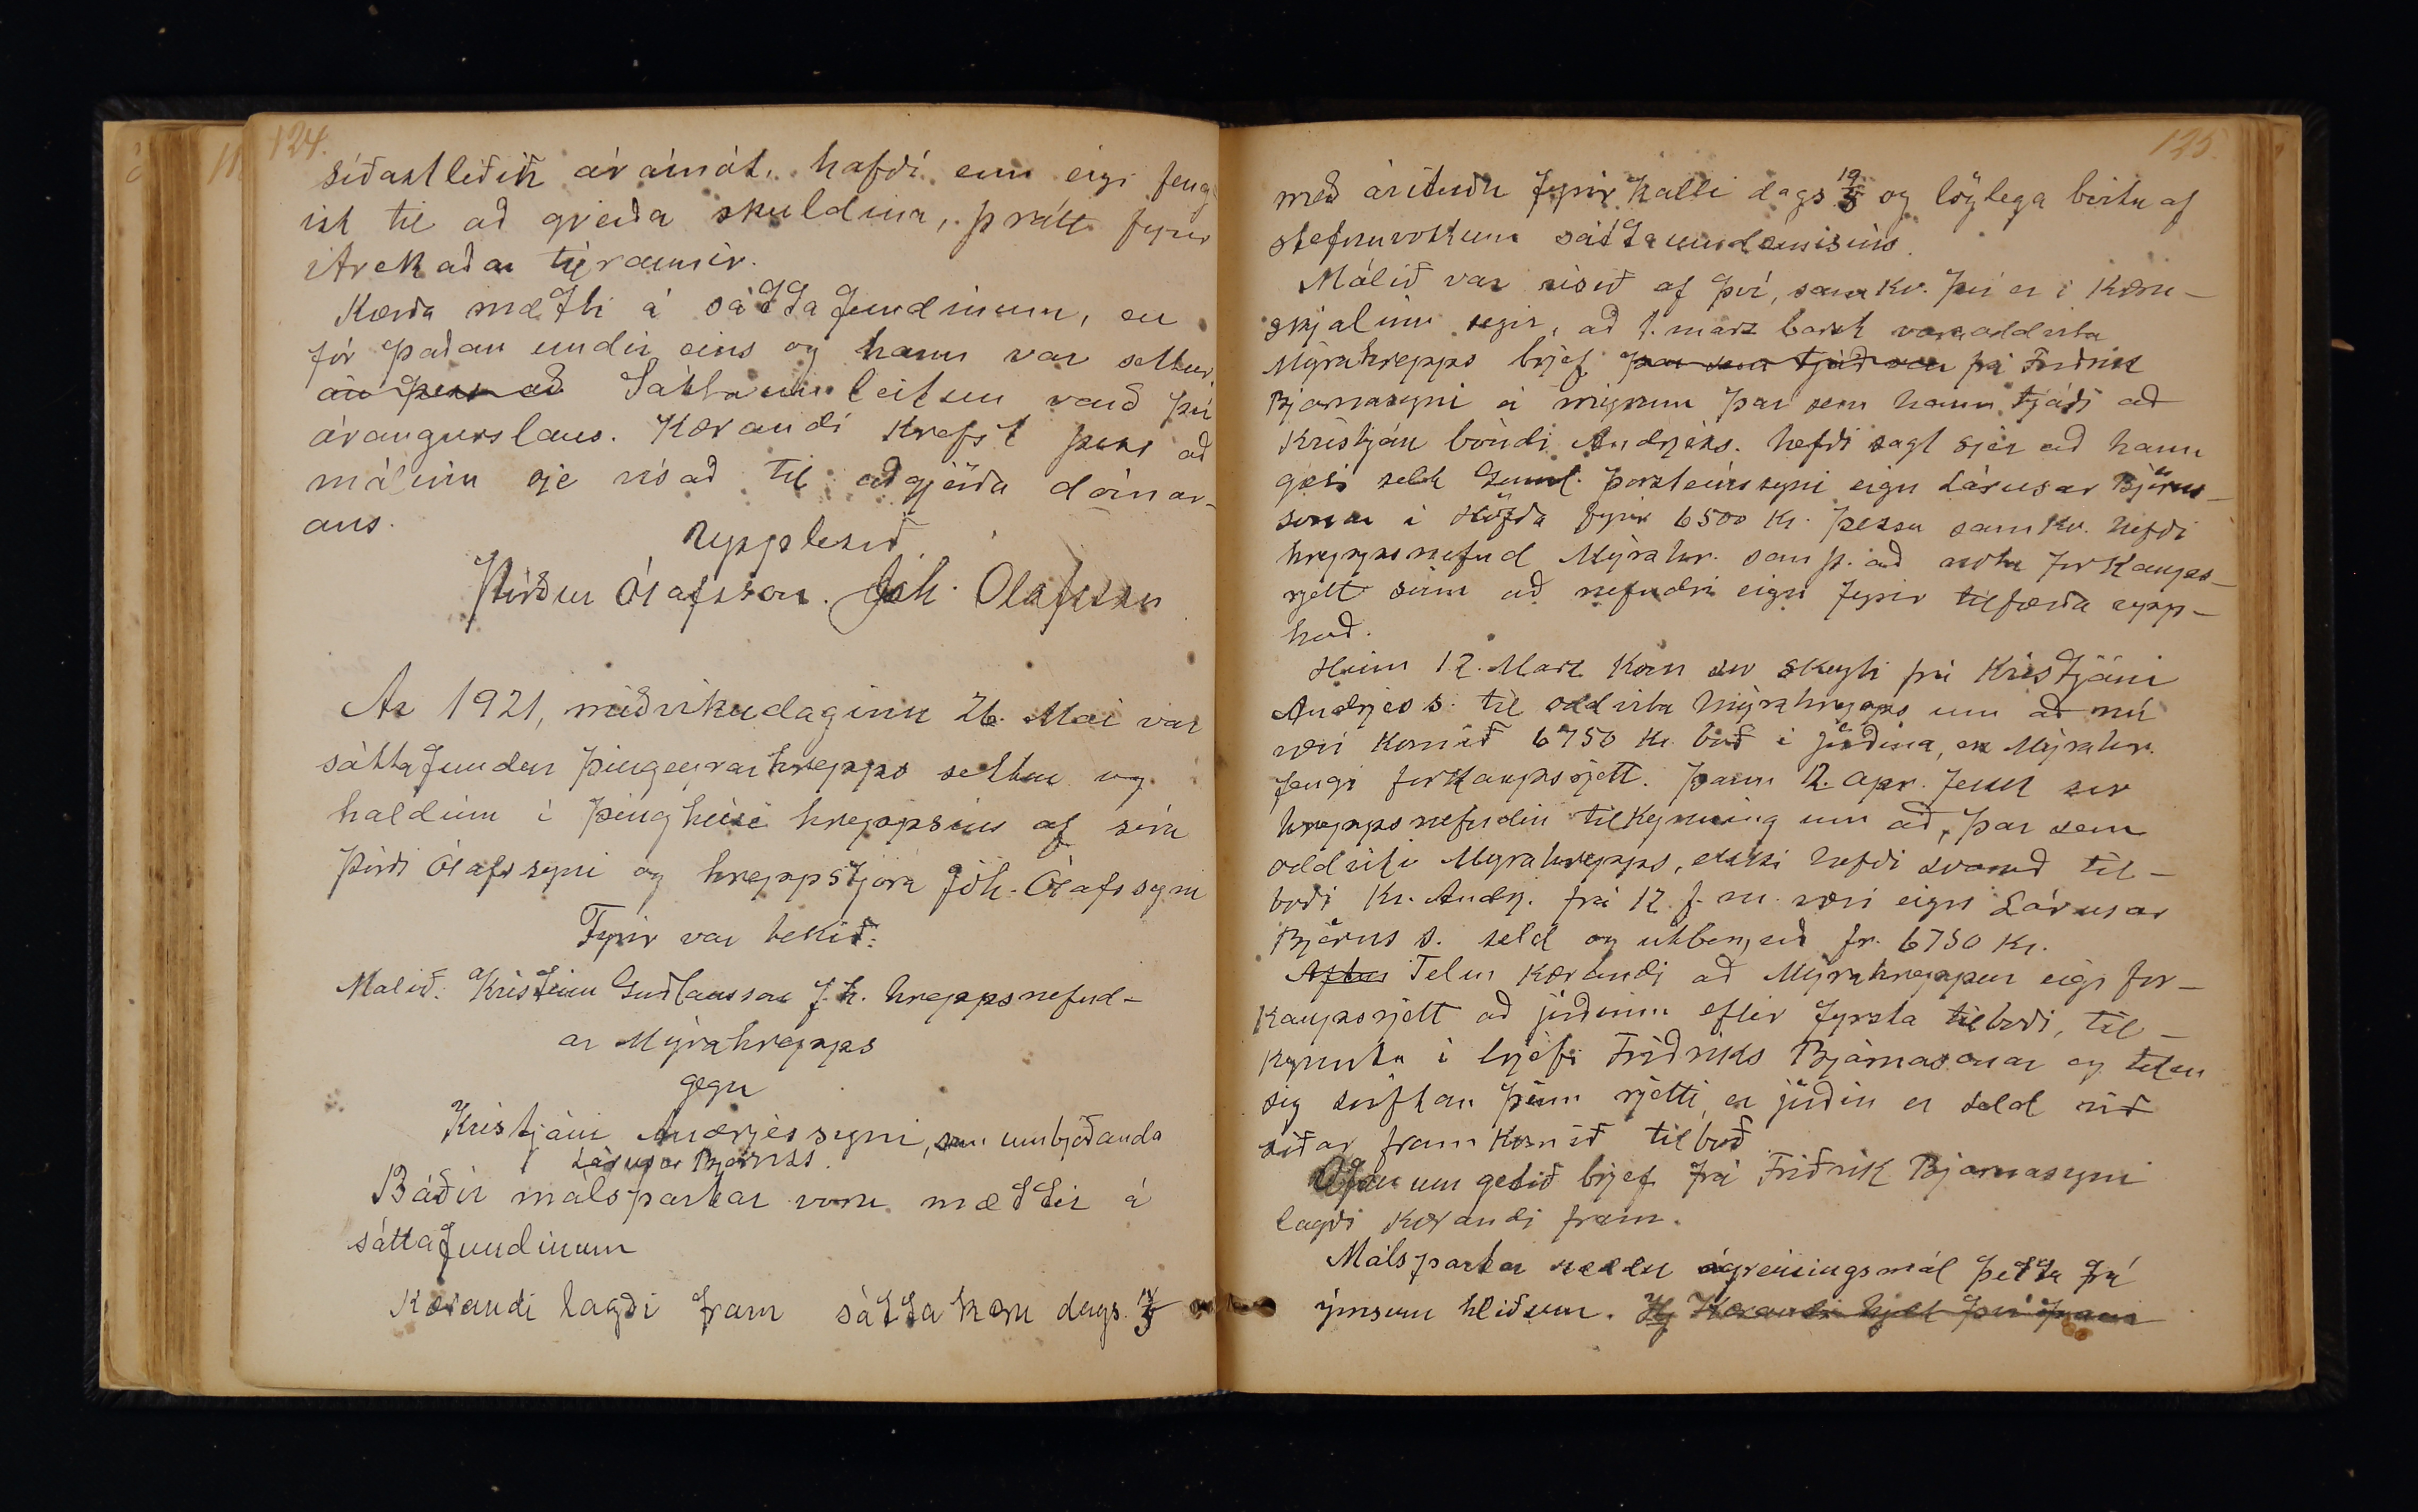 124.
síðastliðin áramót, hafði enn eigi feng
ist til að greiða skuldina, þrátt fyrir
ítrekaðar tilraunir.
Kærða mætti á sáttafundinum, en
fór þaðan undir eins og hann var settur,
án þess að Sáttaumleitun varð því
árangurslaus. Kærandi krefst þess að
málinu sje vísað til aðgjörða dómar-
ans.
Upplesið.
Þórður Ólafsson. Jóh. Ólafsson
Ár 1921, miðvikudaginn 26. Mai var
sáttafundur Þingeyrarhrepps settur og
haldinn í þinghúsi hreppsins af síra
Þórði Ólafssyni og hreppstjóra Jóh. Ólafssyni
Fyrir var tekið:
Málið: Kristinn Guðlaugsson f. h. hreppsnefnd-
ar Mýrahrepps
gegn
Kristjáni Andrjessyni, sem umbjóðanda
Lárusar Björnss.
Báðir málspartar voru mættir á
sáttafundinum
Kærandi lagði fram sáttakæru dags.
125.
með áritaðri fyrirkalli dags 19/5 og löglega birtu af
stefnuvottum sáttaumdæmisins.
Málið var risið af því, samkv. því er í kæru-
skjalinu segir, að 1. marz barst varaoddvita
Mýrahrepps brjef þar sem tjáð var frá Friðrik
Bjarnasyni á Mýrum þar sem hann tjáði að
Kristján bóndi Andrjess. hefði sagt sjer að hann
gæti selt Guml. Þorsteinssyni eign Lárusar Björns-
sonar í Höfða fyrir 6500 kr. Þessu samkv. hefði
hreppsnefnd Mýrahr. samþ. að nota forkaups-
rjett sinn að nefndri eign fyrir tilfærða upp-
hæð.
Hinn 12. Marz kom svo skeyti frá Kristjáni
Andrjess. til oddvita Mýrahrepps um að nú
væri komið 6750 kr. boð í jörðina, en Mýrahr.
fengi forkaupsrjett. Þann 12. apr. fekk svo
hreppsnefndin tilkynning um að, þar sem
oddviti Mýrahrepps, ekki hefði svarað til-
boði Kr. Andrj. frá 12. f. m. væri eign Lárusar
Björns s. seld og útborguð fr. 6750 kr.
Telur kærandi að Mýrahreppur eigi for-
kaupsrjett að jörðinni eftir fyrsta tilboði, til-
kynntu í brjefi Friðriks Bjarnasonar og telur
sig sviftan þeim rjetti, er jörðin er seld við
síðar framkomið tilboð
Ofan um getið brjef frá Friðrik Bjarnasyni
lagði kærandi fram.
Málspartar ræddu ágreiningsmál þetta frá
ýmsum hliðum. Kærandi hjelt því fram